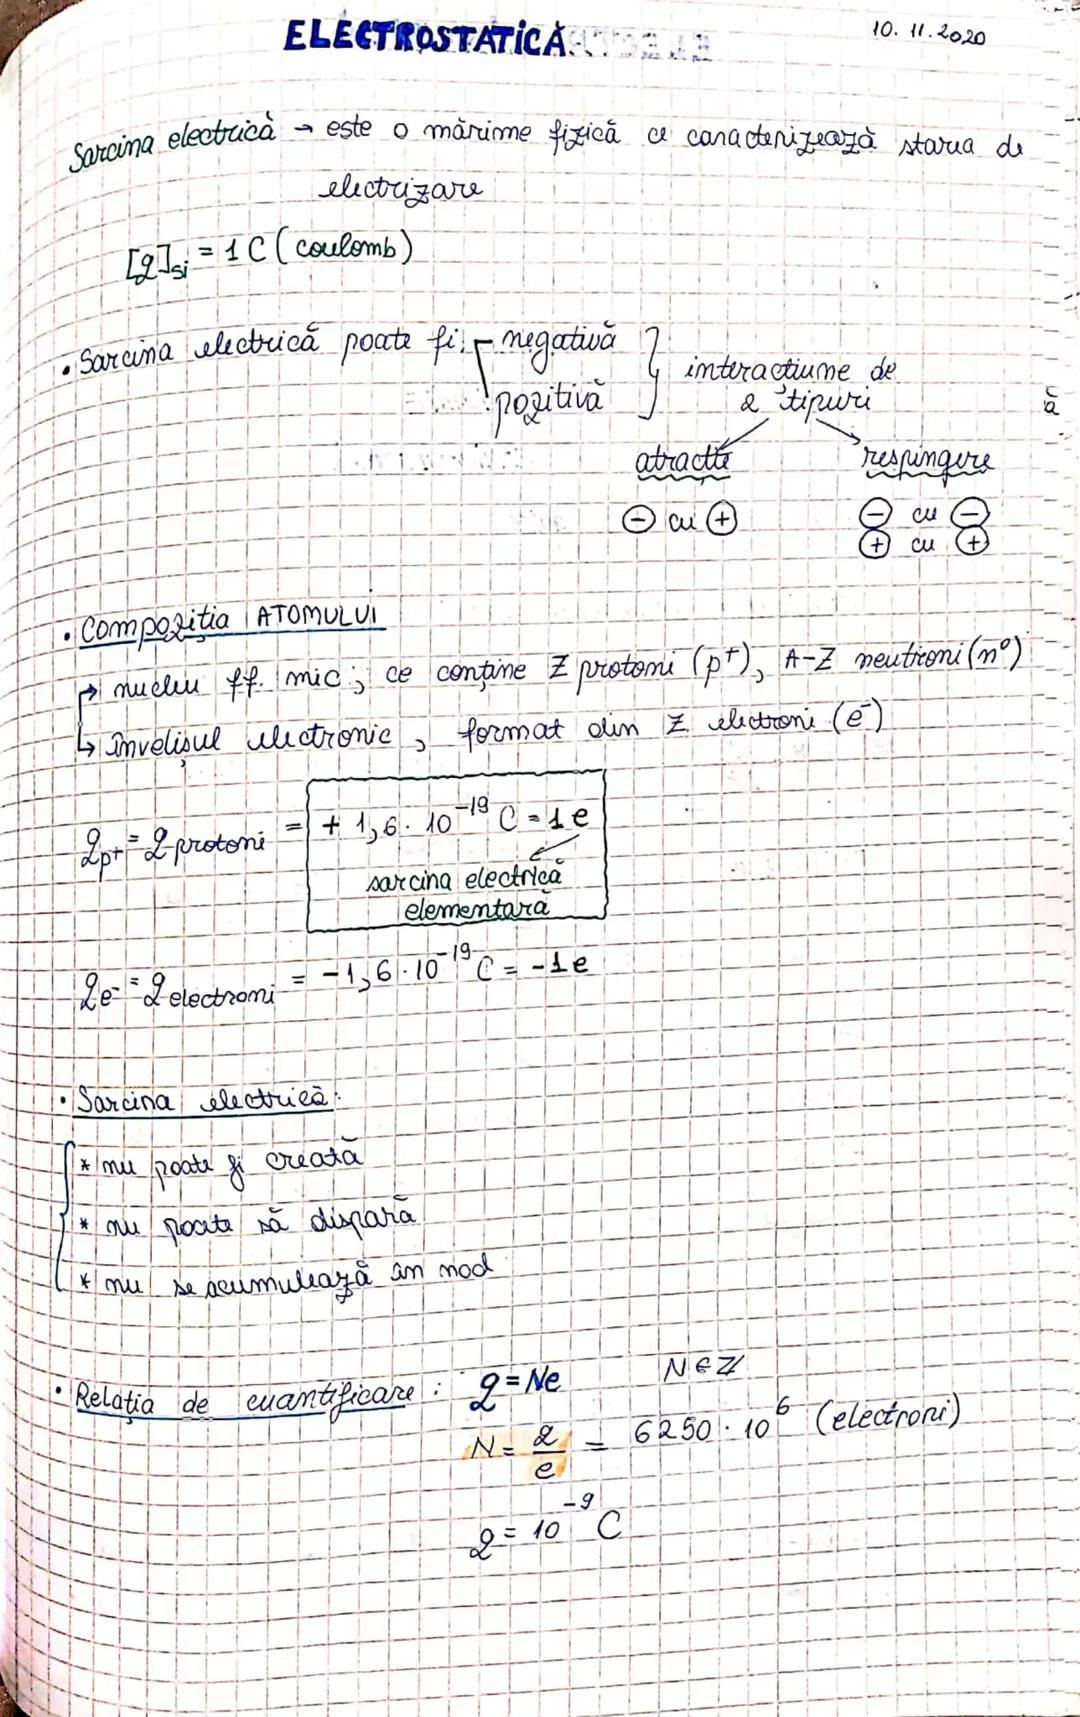 ELECTROSTATICĂ
10. 11. 2020
Sarcina electrică → este o mărime fizică ce caracterizează starea de
electrizare
[q]si = 1 C ( coulomb )
• Sarcina electrică poate fi: negativă
pozitivă
interacțiune de
2 tipuri
ă
atracție
respingere
⊖ cu ⊕
⊖ cu ⊖
⊕ cu ⊕
• Compoziția ATOMULUI
→ nucleu ff. mic ; ce conține Z protoni (p⁺), A-Z neutroni (n⁰)
↳ învelișul electronic , format din Z electroni (e⁻)
qp⁺ = q protoni = + 1,6 · 10⁻¹⁹ C = 1 e
sarcina electrică
elementară
qe⁻ = q electroni = -1,6 · 10⁻¹⁹ C = -1 e
• Sarcina electrică:
* nu poate fi creată
* nu poate să dispară
* nu se acumulează în nod
• Relația de cuantificare : q = Ne N ∈ Z
N = q/e = 6250 · 10⁶ (electroni)
q = 10⁻⁹ C